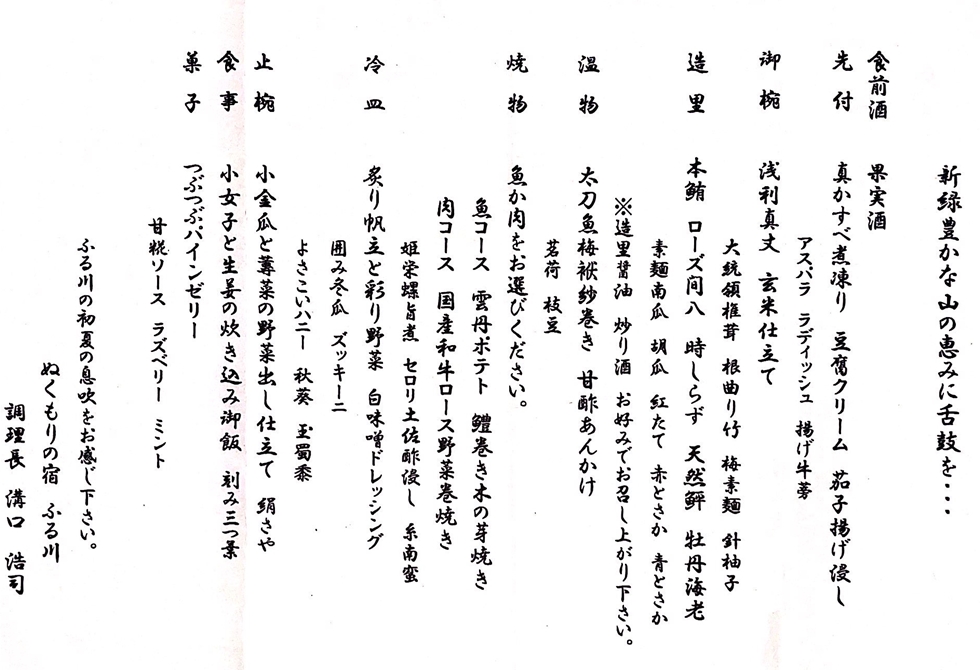 新緑豊かな山の恵みに舌鼓を・・・
食前酒 果実酒
先付 真かすべ煮凍り 豆腐クリーム 茄子揚げ浸し
アスパラ ラディッシュ 揚げ牛蒡
御椀 浅利真丈 玄米仕立て
大統領椎茸 根曲り竹 梅素麺 針柚子
造里 本鮪 ローズ間八 時しらず 天然鮃 牡丹海老
素麺南瓜 胡瓜 紅たて 赤とさか 青とさか
※造里醤油 炒り酒 お好みでお召し上がり下さい。
温物 太刀魚梅袱紗巻き 甘酢あんかけ
茗荷 枝豆
焼物 魚か肉をお選びください。
魚コース 雲丹ポテト 鱧巻き木の芽焼き
肉コース 国産和牛ロース野菜巻焼き
姫栄螺旨煮 セロリ土佐酢浸し 糸南蛮
冷皿 炙り帆立と彩り野菜 白味噌ドレッシング
囲み冬瓜 ズッキーニ
よさこいハニー 秋葵 玉蜀黍
止椀 小金瓜と蓴菜の野菜出し仕立て 絹さや
食事 小女子と生姜の炊き込み御飯 刻み三つ葉
菓子 つぶつぶパインゼリー
甘糀ソース ラズベリー ミント
ふる川の初夏の息吹をお感じ下さい。
ぬくもりの宿 ふる川
調理長 溝口 浩司